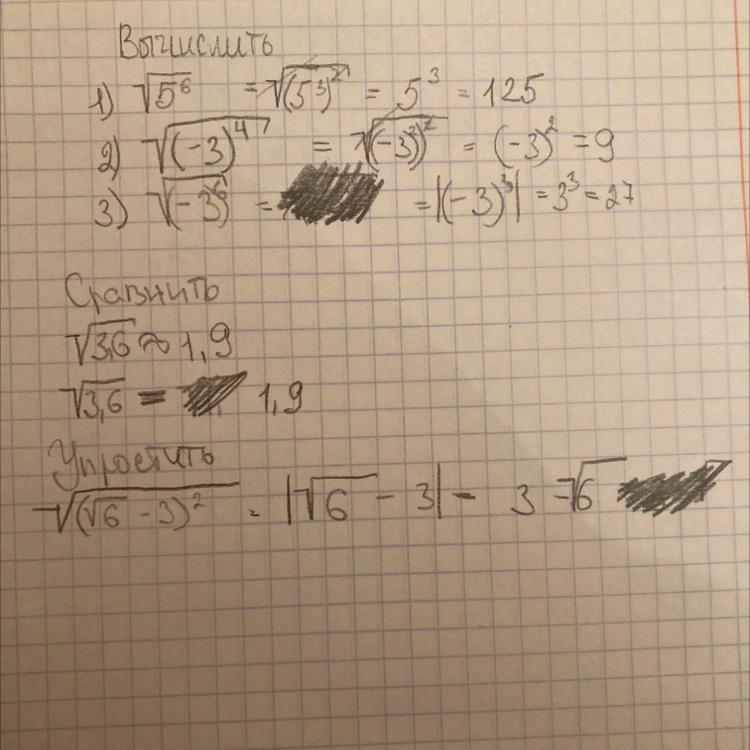 Вычислить
1) √5⁶ = √(5³)² = 5³ = 125
2) √(-3)⁴ = √((-3)²)² = (-3)² = 9
3) √(-3)⁶ = = |(-3)³| = 3³ = 27
Сравнить
√3,6 ≈ 1,9
√3,6 = 1,9
Упростить
√(√6 - 3)² = |√6 - 3| - 3 = √6